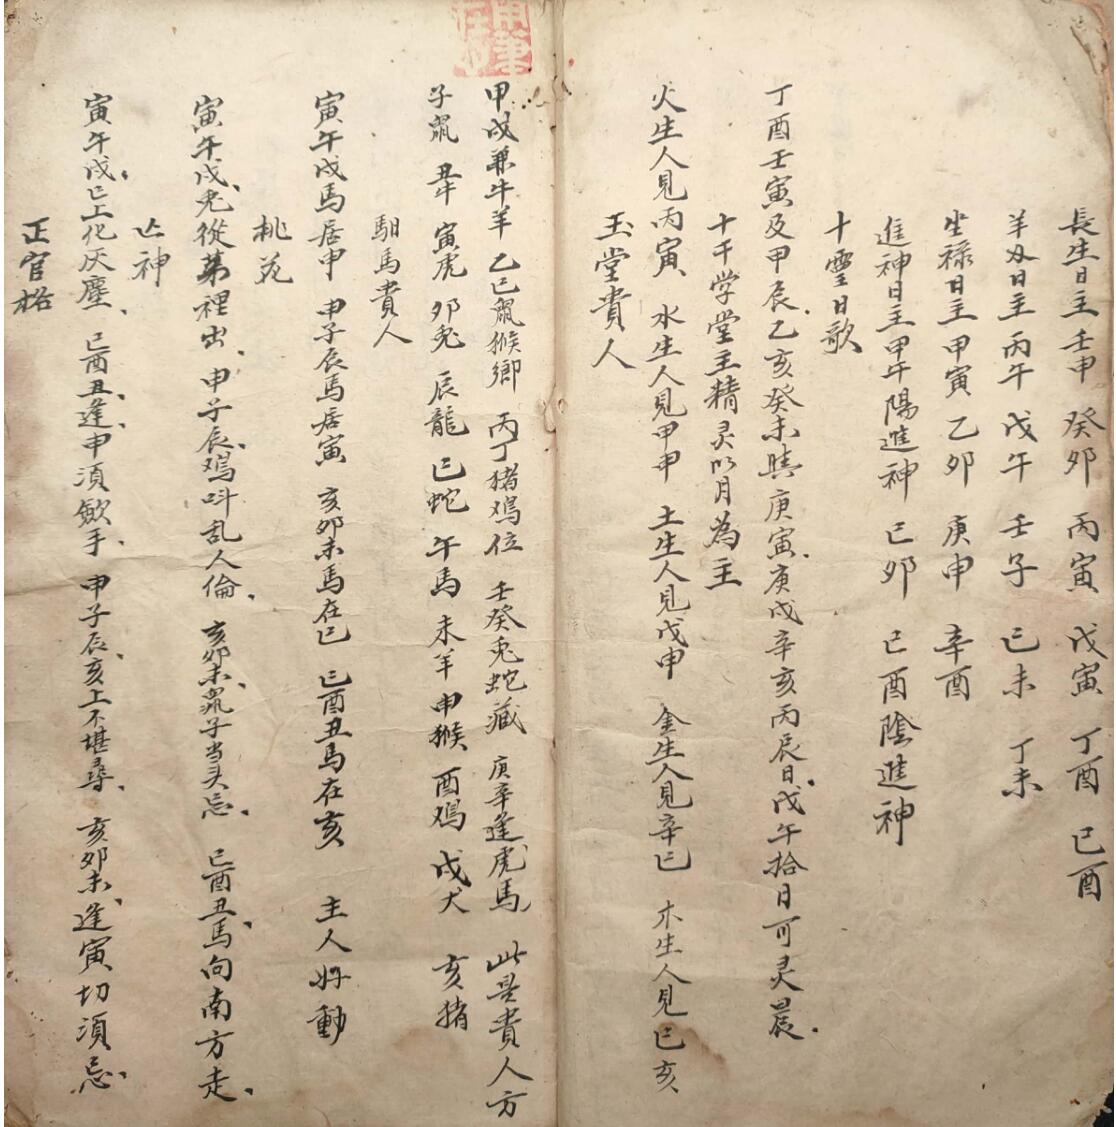 長生日主壬申 癸卯 丙寅 戊寅 丁酉 己酉
羊刃日主丙午 戊午 壬子 己未 丁未
坐祿日主甲寅 乙卯 庚申 辛酉
進神日主甲午陽進神 己卯 己酉陰進神
十靈日歌
丁酉壬寅及甲辰乙亥癸未與庚寅庚戌辛亥丙辰日戊午拾日可灵晨
十干学堂主精灵以月為主
火生人見丙寅 水生人見甲申 土生人見戊申 金生人見辛巳 木生人見己亥
玉堂貴人
甲戊兼牛羊 乙己鼠猴鄉 丙丁猪鸡位 壬癸兎蛇藏 庚辛逢虎馬 此是貴人方
子鼠 丑牛 寅虎 卯兎 辰龍 巳蛇 午馬 未羊 申猴 酉鸡 戌犬 亥猪
馹馬貴人
寅午戌馬居申 申子辰馬居寅 亥卯未馬在巳 巳酉丑馬在亥 主人好動
桃花
寅午戌兎從茅裡出 申子辰鸡叫乱人倫 亥卯未鼠子当头忌 巳酉丑馬向南方走
亡神
寅午戌巳上化灰塵 巳酉丑逢申須歛手 申子辰亥上不堪尋 亥卯未逢寅切須忌
正官格